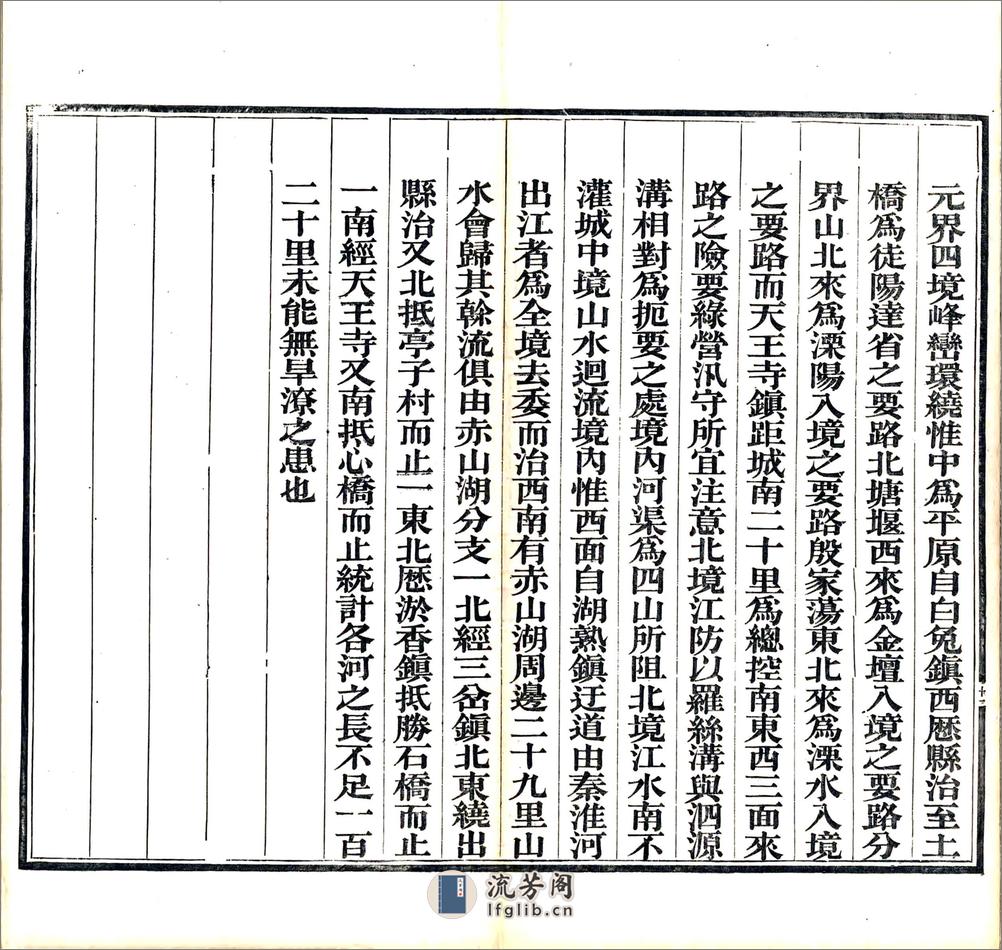 元界四境峰巒環繞惟中爲平原自白兔鎭西厯縣治至土
橋爲徒陽達省之要路北塘堰西來爲金壇入境之要路分
界山北來爲溧陽入境之要路殷家蕩東北來爲溧水入境
之要路而天王寺鎭距城南二十里爲總控南東西三面來
路之險要綠營汛守所宜注意北境江防以羅絲溝與泗源
溝相對爲扼要之處境內河渠爲四山所阻北境江水南不
灌城中境山水迴流境內惟西面自湖熟鎭迂道由秦淮河
出江者爲全境去委而治西南有赤山湖周邊二十九里山
水會歸其餘流俱由赤山湖分支一北經三岔鎭北東繞出
縣治又北抵亭子村而止一東北厯淤香鎭抵勝石橋而止
一南經天王寺又南抵心橋而止統計各河之長不足一百
二十里未能無旱潦之患也
流芳阁
lfglib.cn